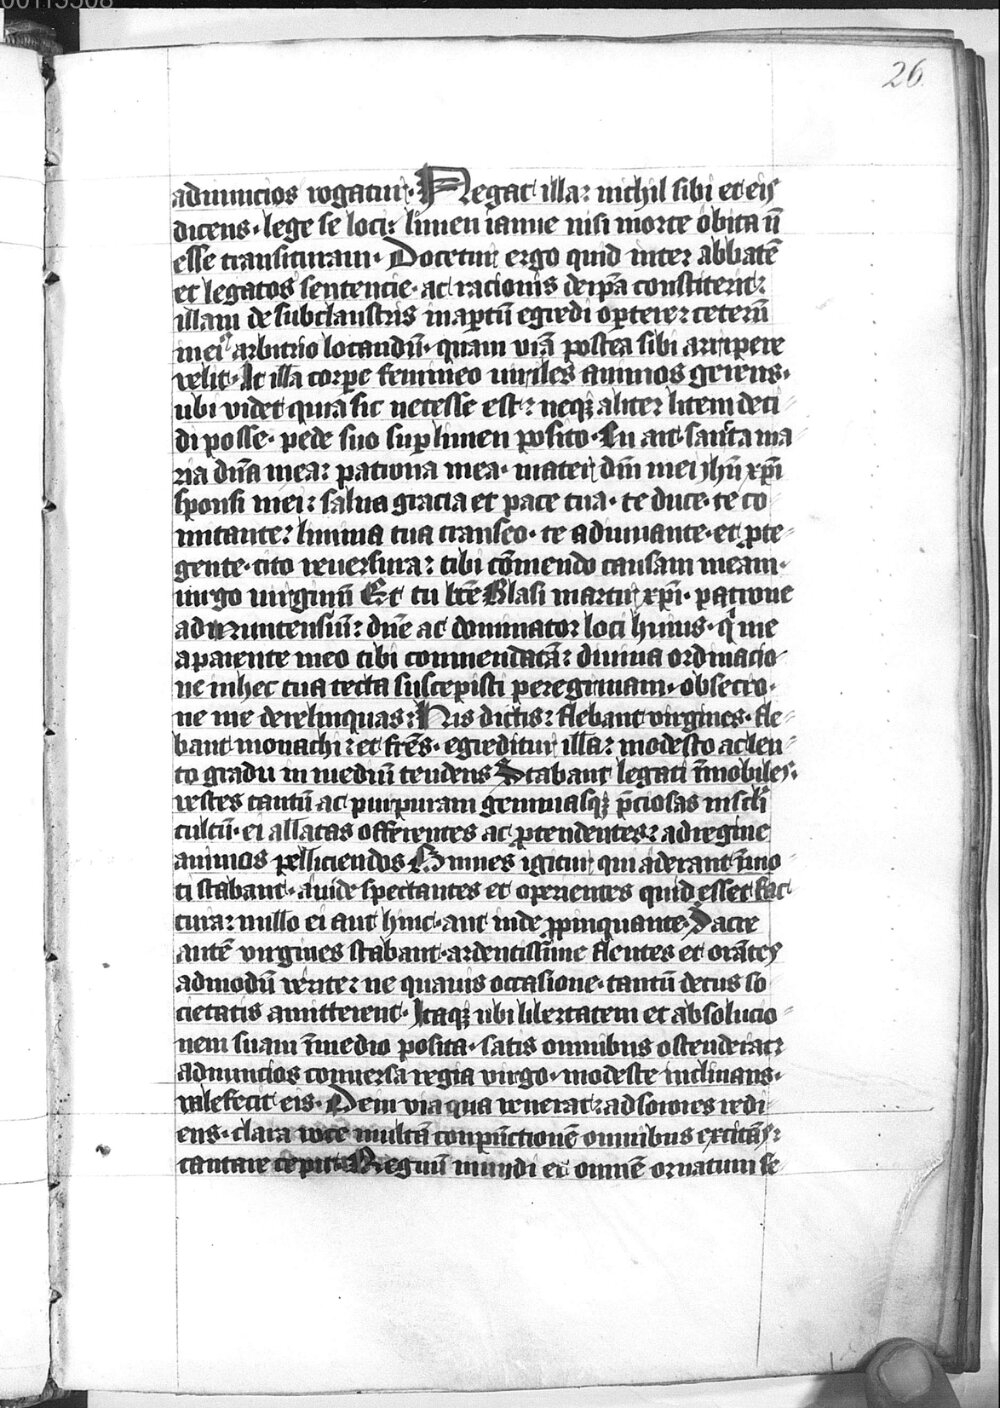 00113508
26
adnuncios rogatur. Negat illa: nichil sibi et eis
dicens. lege se loci: limen ianue nisi morte obita n̄
esse transituram. Docetur ergo quid inter abbatē
et legatos sentencie. ac racionis de ip̄a constiterit:
illam de subclaustris in ap̄tū egredi oportere: ceterū
mei arbitrio locandū. quam viā postea sibi arripere
velit. At illa corpe femineo viriles animos gerens.
ubi videt quia sic necesse est: neqʒ aliter litem deci
di posse. pede suo sup limen posito. En ait sancta ma
ria dn̄a mea: patrona mea. mater dn̄i mei ihū xp̄i
sponsi mei: salua gracia et pace tua. te duce. te co
mitante: limina tua transeo. te adiuuante. et p̄te
gente. cito reuersura: tibi cōmendo causam meam.
uirgo uirginū Et tu btē Blasi martir xp̄i. patrone
admuntensiū: dn̄e ac dominator loci huius. q' me
a parente meo tibi commendatā: diuina ordinacio
ne in hec tua tecta suscepisti peregrinam. obsecro.
ne me derelinquas: His dictis: flebant virgines. fle
bant monachi: et fr̄es. egreditur illa: modesto ac len
to gradu in mediū tendens Stabant legati īmobiles.
vestes tantū ac purpuram gemmasqʒ p̄ciosas in scl̄i
cultū. ei allatas offerentes ac p̄tendentes: ad regine
animos pelliciendos Omnes igitur qui aderant īmo
ti stabant. auide spectantes et operientes quid esset fac
tura: nullo ei aut hinc. aut inde p̄pinquante. Sacre
autē virgines stabant. ardentissime flentes et orātes
admodū verite: ne quauis occasione. tantū decus so
cietatis amitterent. Itaqʒ ubi libertatem et absolucio
nem suam ī medio posita. satis omnibus ostenderat:
ad nuncios conuersa regia virgo. modeste inclinans.
valefecit eis. Dein via qua venerat: ad sorores redi
ens. clara voce multā conpūctionē omnibus excitās:
cantare cepit. Regnū mundi et omnē ornatum se